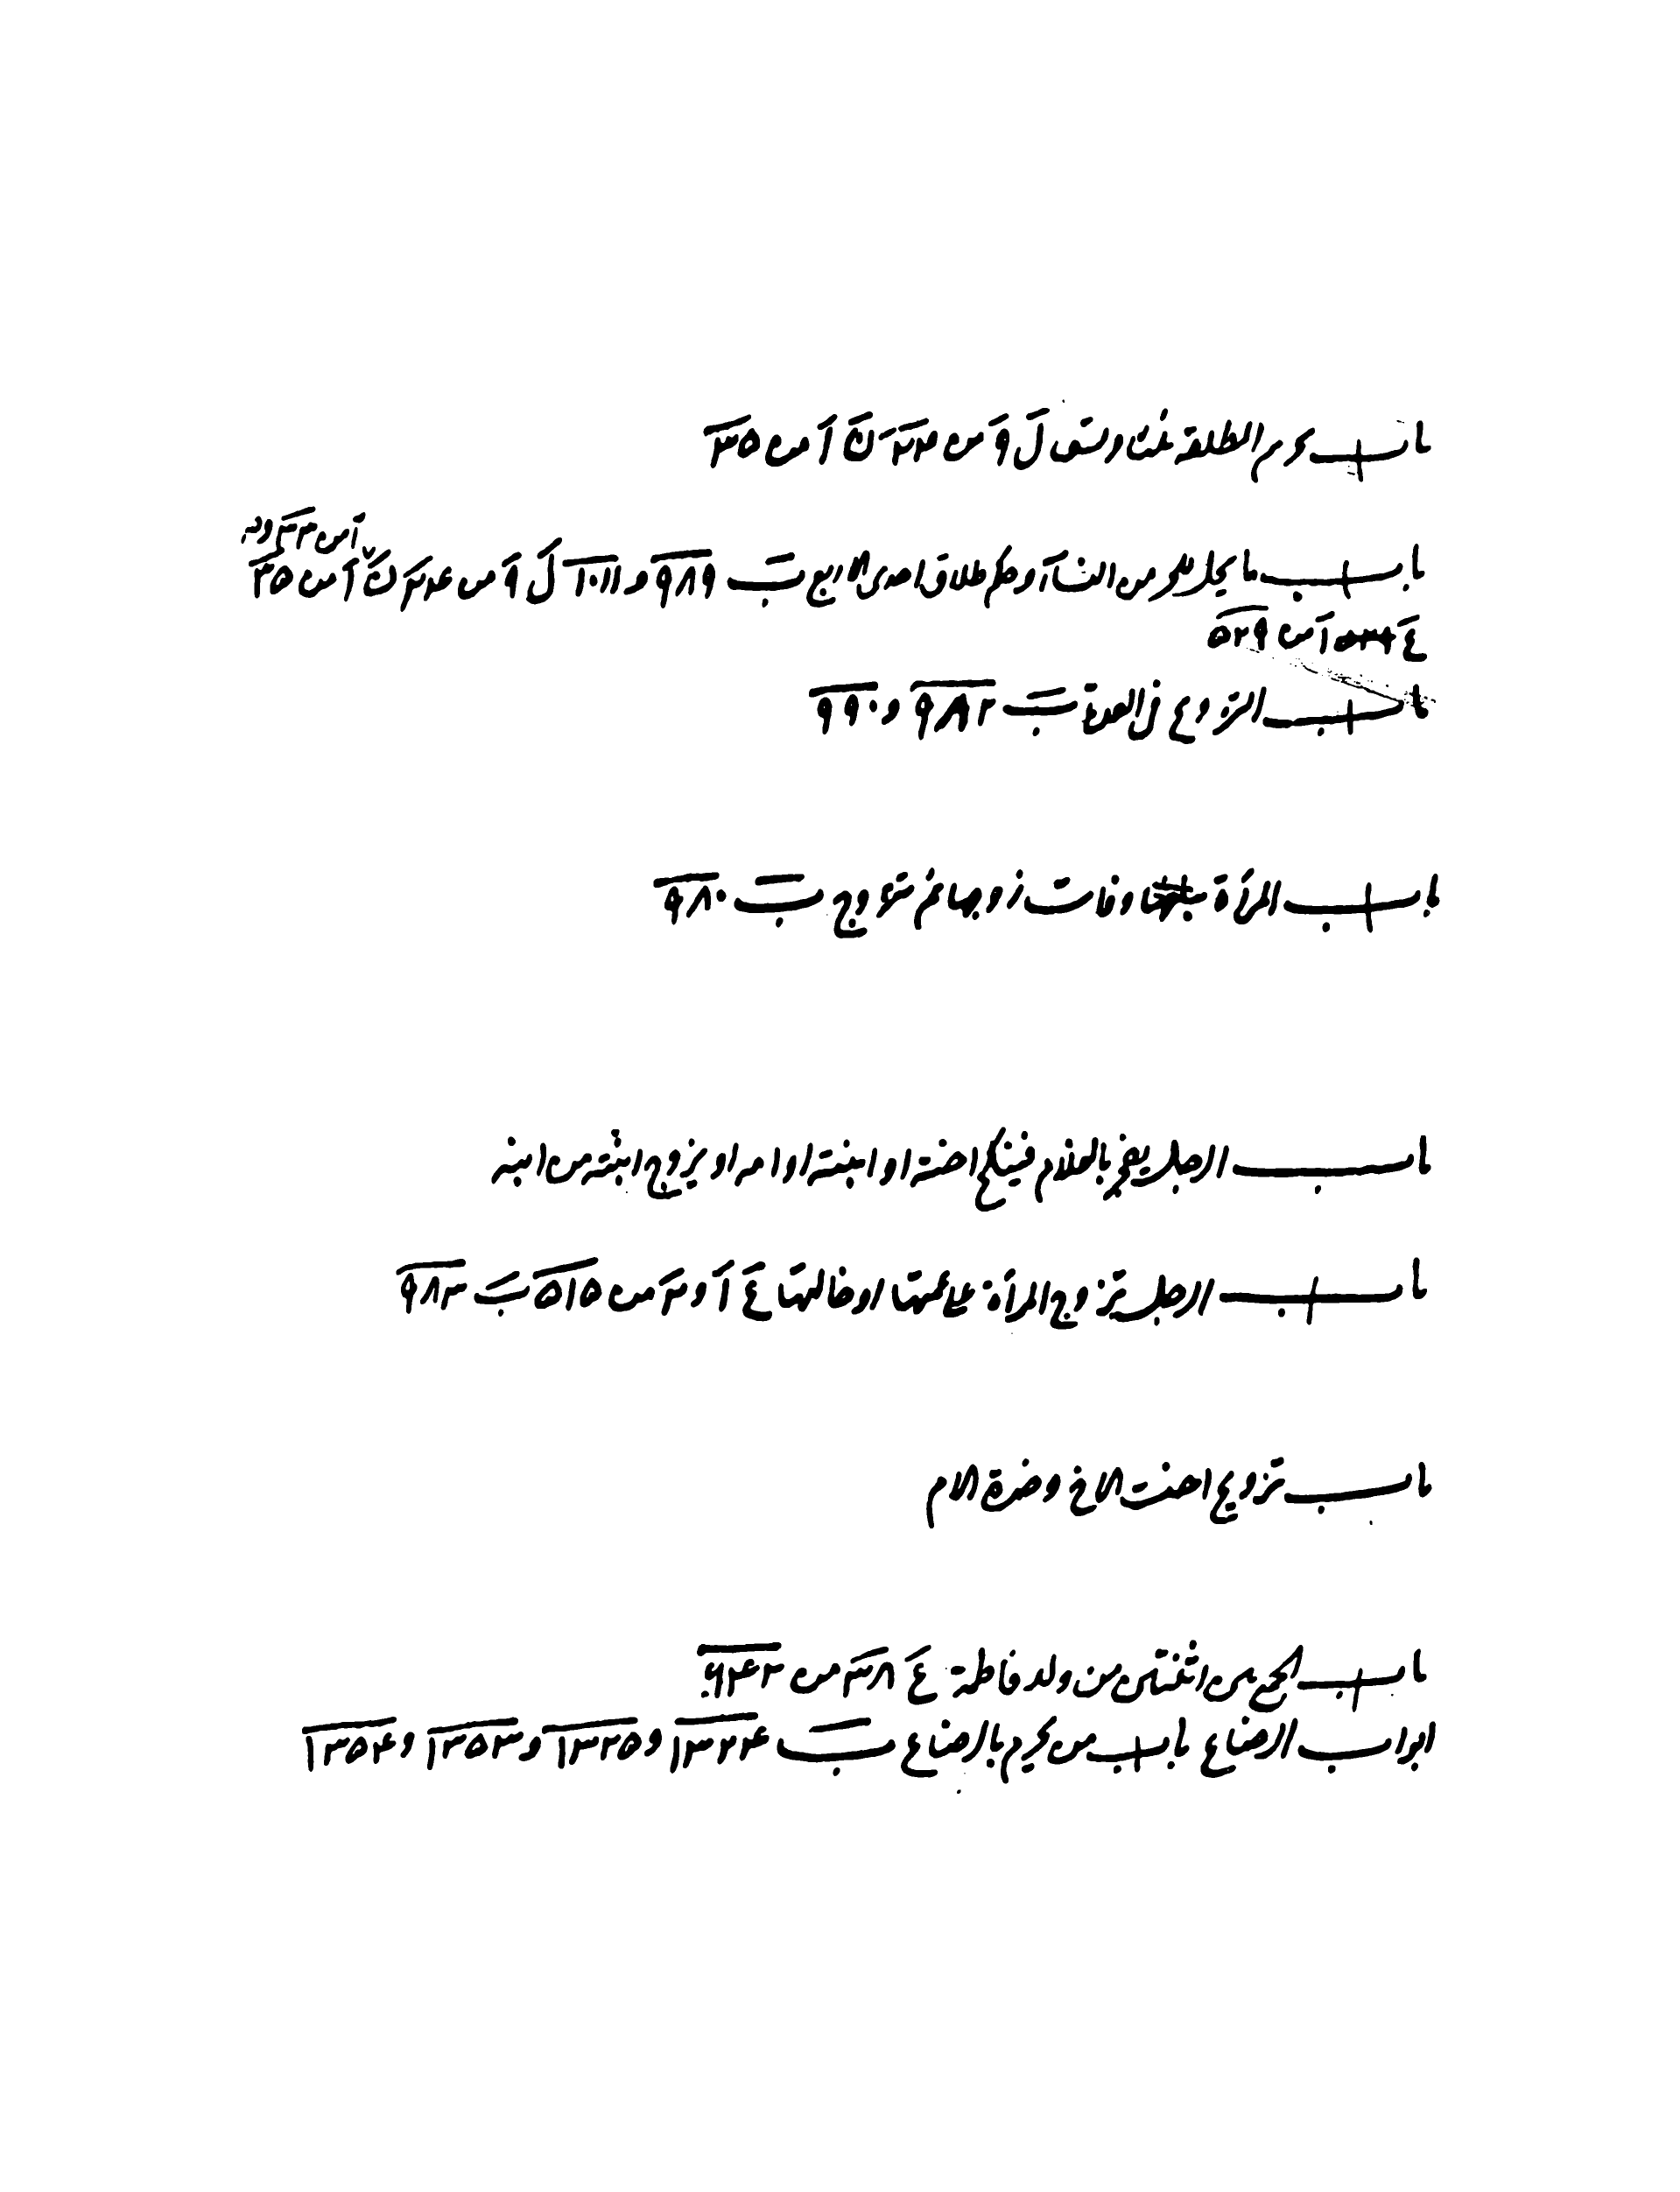 باب تحريم المطلقة ثلث وتسعا ل ٩ من ٢٣ ك آ من ٣٥
باب ما يحل للحر من النسآء وحكم طلاق احدى الاربع ب ٩٨٩ و ١٠١١ ل ٩ من ٢٤ ك آ من ٣٥
ع آ من ٥٢٩
باب التزويج في العدة ب ٩٨٢ و ٩٩٠
باب المرأة وفات زوجها ثم تتزوج ب ٩٨٠
باب الرجل يفجر بالغلام فينكح اخته او ابنته او امه او يزوج ابنته من ابنه
باب الرجل يتزوج المرأة على عمتها او خالتها ع آ و ٣ من ٥١٥ ب ٩٨٣
باب تزويج اخت الاخ وضرة الام
باب الجمع بين اثنتين من ولد فاطمة ع ٣٨ من
ابواب الرضاع باب من يحرم بالرضاع ب ١٣٢٤ و ١٣٢٥ و ١٣٥٣ و ١٣٥٤